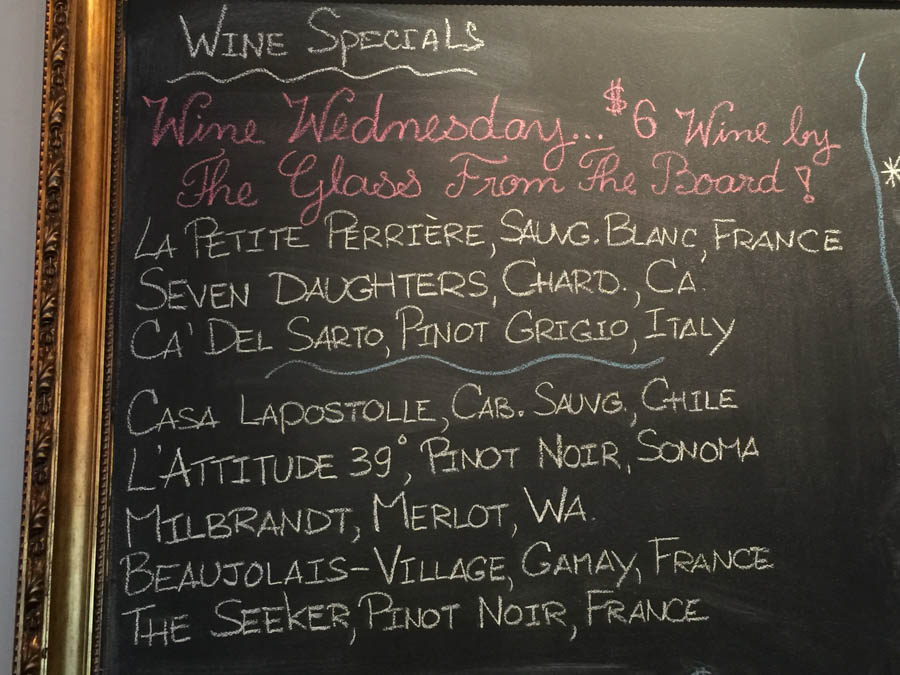 WINE SPECIALS
Wine Wednesday... $6 Wine by
The Glass From The Board!
LA PETITE PERRIÈRE, SAUVG. BLANC, FRANCE
SEVEN DAUGHTERS, CHARD., CA.
CA' DEL SARTO, PINOT GRIGIO, ITALY
CASA LAPOSTOLLE, CAB. SAUVG., CHILE
L'ATTITUDE 39°, PINOT NOIR, SONOMA
MILBRANDT, MERLOT, WA.
BEAUJOLAIS-VILLAGE, GAMAY, FRANCE
THE SEEKER, PINOT NOIR, FRANCE